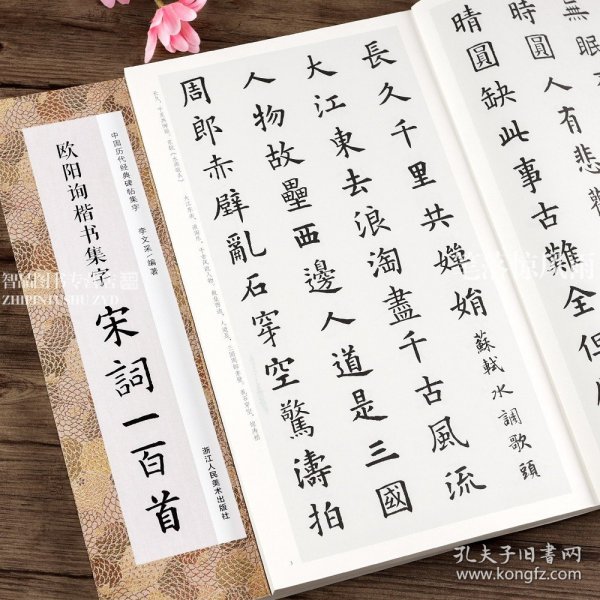 中国历代经典碑帖集字
欧阳询楷书集字
李文采 编著
宋詞一百首
浙江人民美术出版社
無眠不
時圓人有悲歡
晴圓缺此事古難全但
長久千里共嬋娟
蘇軾水調歌頭
大江東去浪淘盡千古風流
人物故壘西邊人道是三國
周郎赤壁亂石穿空驚濤拍
1
ZHIPINTUSHU ZYD
孔夫子旧书网
www.kongfz.com